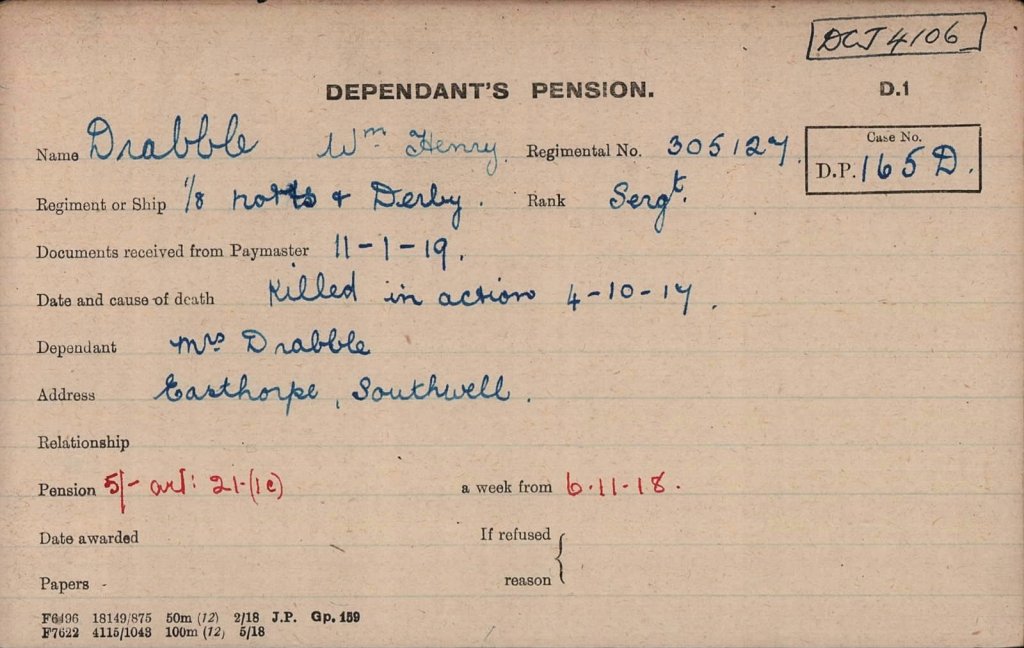 DCJ 4106
DEPENDANT'S PENSION. D.1
Name Drabble Wm Henry. Regimental No. 305127. Case No. D.P. 165 D.
Regiment or Ship 1/8 Notts & Derby. Rank Sergt.
Documents received from Paymaster 11-1-19.
Date and cause of death Killed in action 4-10-17.
Dependant Mrs Drabble
Address Easthorpe, Southwell.
Relationship
Pension 5/- art: 21-(1c) a week from 6.11.18.
Date awarded If refused
Papers - reason
F6496 18149/875 50m (12) 2/18 J.P. Gp. 159
F7622 4115/1043 100m (12) 5/18